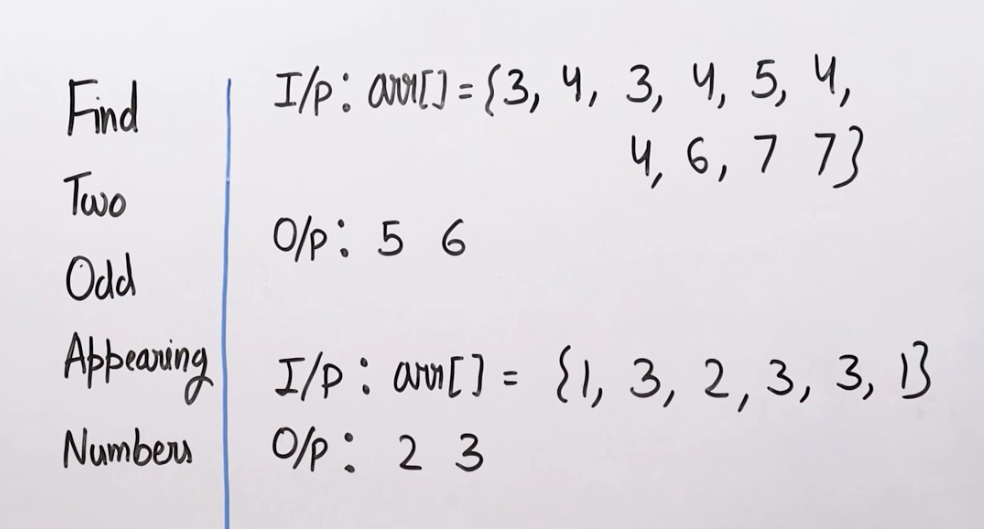 Find
Two
Odd
Appearing
Numbers
I/p: arr[] = {3, 4, 3, 4, 5, 4,
4, 6, 7 7}
O/p: 5 6
I/p: arr[] = {1, 3, 2, 3, 3, 1}
O/p: 2 3